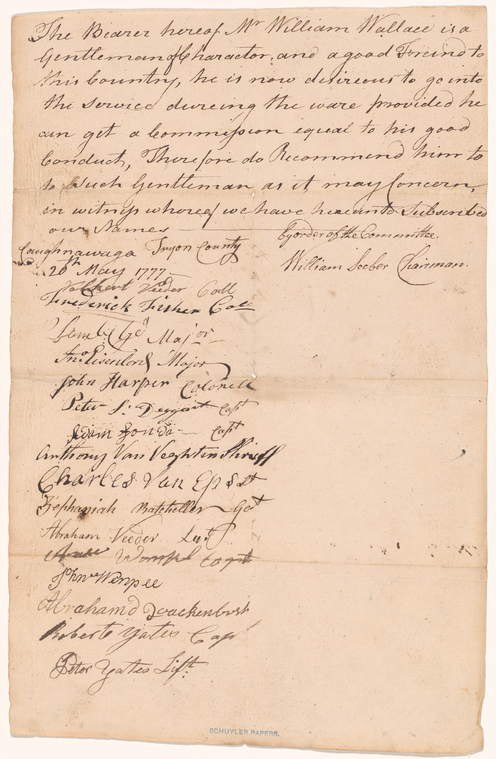 The Bearer hereof Mr William Wallace is a
Gentleman of Charactor, and a good Freind to
this Country, he is now desireous to go into
the Service dureing the ware provided he
can get a Commission equal to his good
Conduct, Therefore do Recommend him to
to Such Gentleman as it may Concern,
in witness whereof we have hereunto Subscribed
our Names
By order of the Committee.
Caughnawaga Tryon County
William Seeber Chairman.
20th May 1777
Volkert Veeder Coll
Frederick Fisher Col
Major
Jno Eisenlord Major
John Harper Colonell
Peter S. Deygart Capt
Adam Fonda Capt
Anthony Van Veghten Shriff
Charles Van Eps
Zephaniah Batcheller
Abraham Veeder Lut
Wempel Capt
John Wempee
Abraham d Quackenbush
Robert Yates Cap
Peter Yates Lift.
SCHUYLER PAPERS.